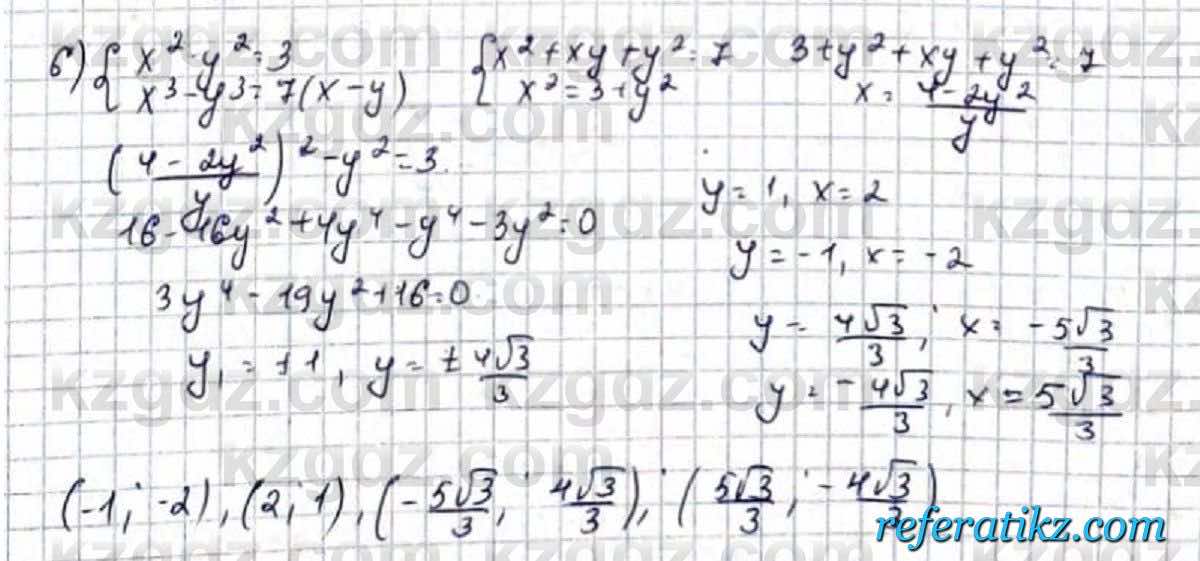 б) { x² - y² = 3
x³ - y³ = 7(x - y)
{ x² + xy + y² = 7
x² = 3 + y²
3 + y² + xy + y² = 7
x = (4 - 2y²)/y
((4 - 2y²)/y)² - y² = 3
16 - 16y² + 4y⁴ - y⁴ - 3y² = 0
3y⁴ - 19y² + 16 = 0
y₁ = ±1, y = ± 4√3/3
y = 1, x = 2
y = -1, x = -2
y = 4√3/3; x = -5√3/3
y = -4√3/3, x = 5√3/3
(-1; -2), (2; 1), (-5√3/3; 4√3/3); (5√3/3; -4√3/3)
referatikz.com